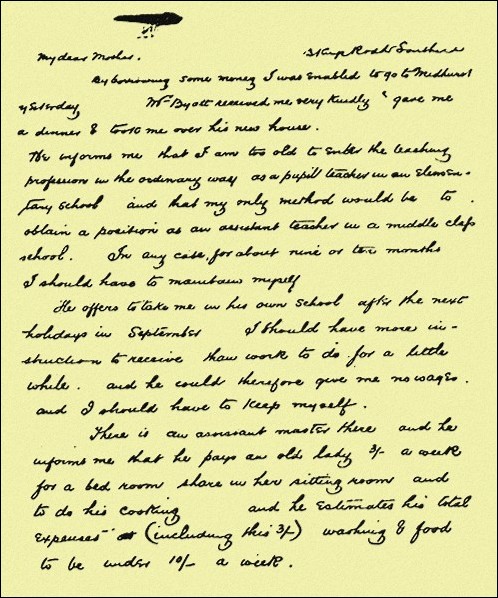 My dear Mother. 3 Kings Road Southsea
By borrowing some money I was enabled to go to Midhurst
yesterday Mr Byatt received me very kindly & gave me
a dinner & took me over his new house.
He informs me that I am too old to enter the teaching
profession in the ordinary way as a pupil teacher in an Elemen-
tary School and that my only method would be to
obtain a position as an assistant teacher in a middle class
school. In any case, for about nine or ten months
I should have to maintain myself
He offers to take me in his own School after the next
holidays in September I should have more in-
struction to receive than work to do for a little
while. and he could therefore give me no wages.
and I should have to keep myself.
There is an assistant master there and he
informs me that he pays an old lady 3/- a week
for a bed room share in her sitting room and
to do his cooking and he estimates his total
expenses (including this 3/-) washing & food
to be under 10/- a week.